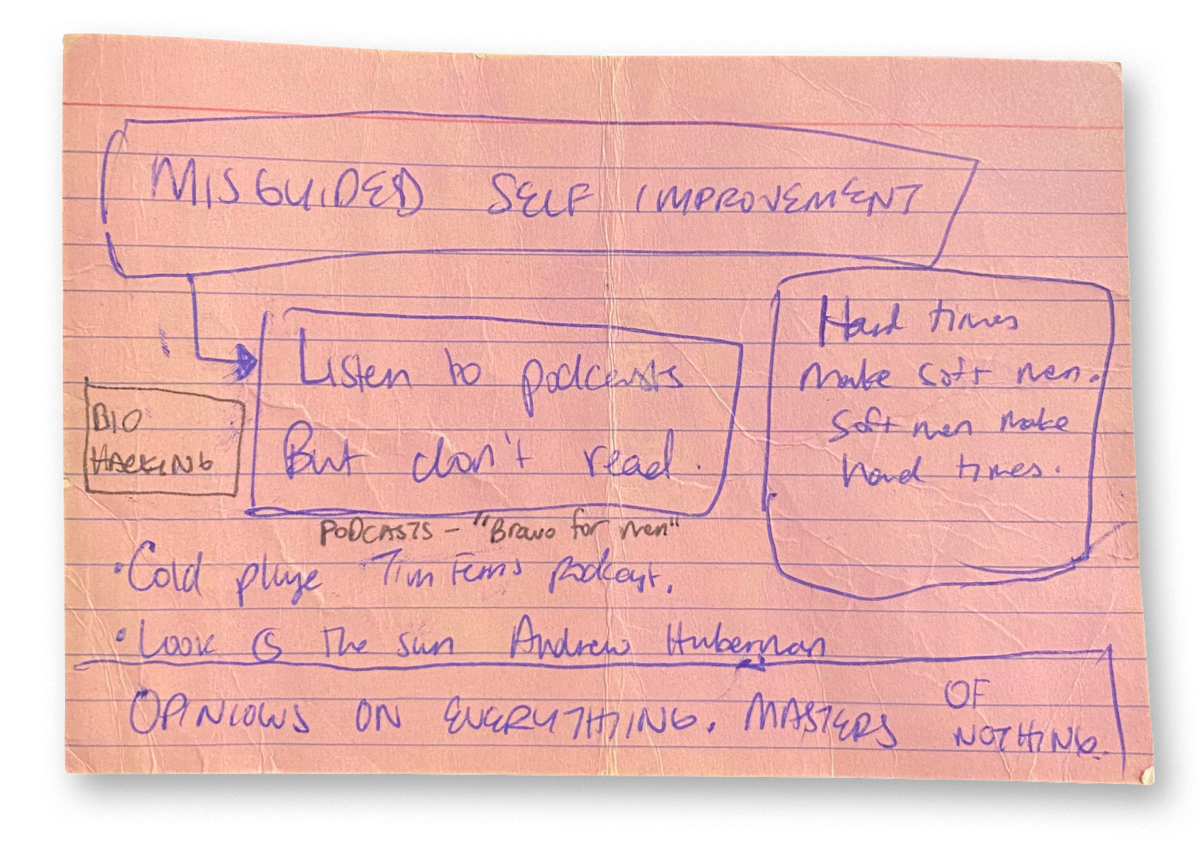 MISGUIDED SELF IMPROVEMENT
Listen to podcasts
But don't read.
Hard times
Make soft men.
Soft men make
hard times.
BIO
HACKING
PODCASTS - "Bravo for men"
• Cold plunge Tim Ferris podcast.
• Look @ The sun Andrew Huberman
OPINIONS ON EVERYTHING. MASTERS OF
NOTHING.